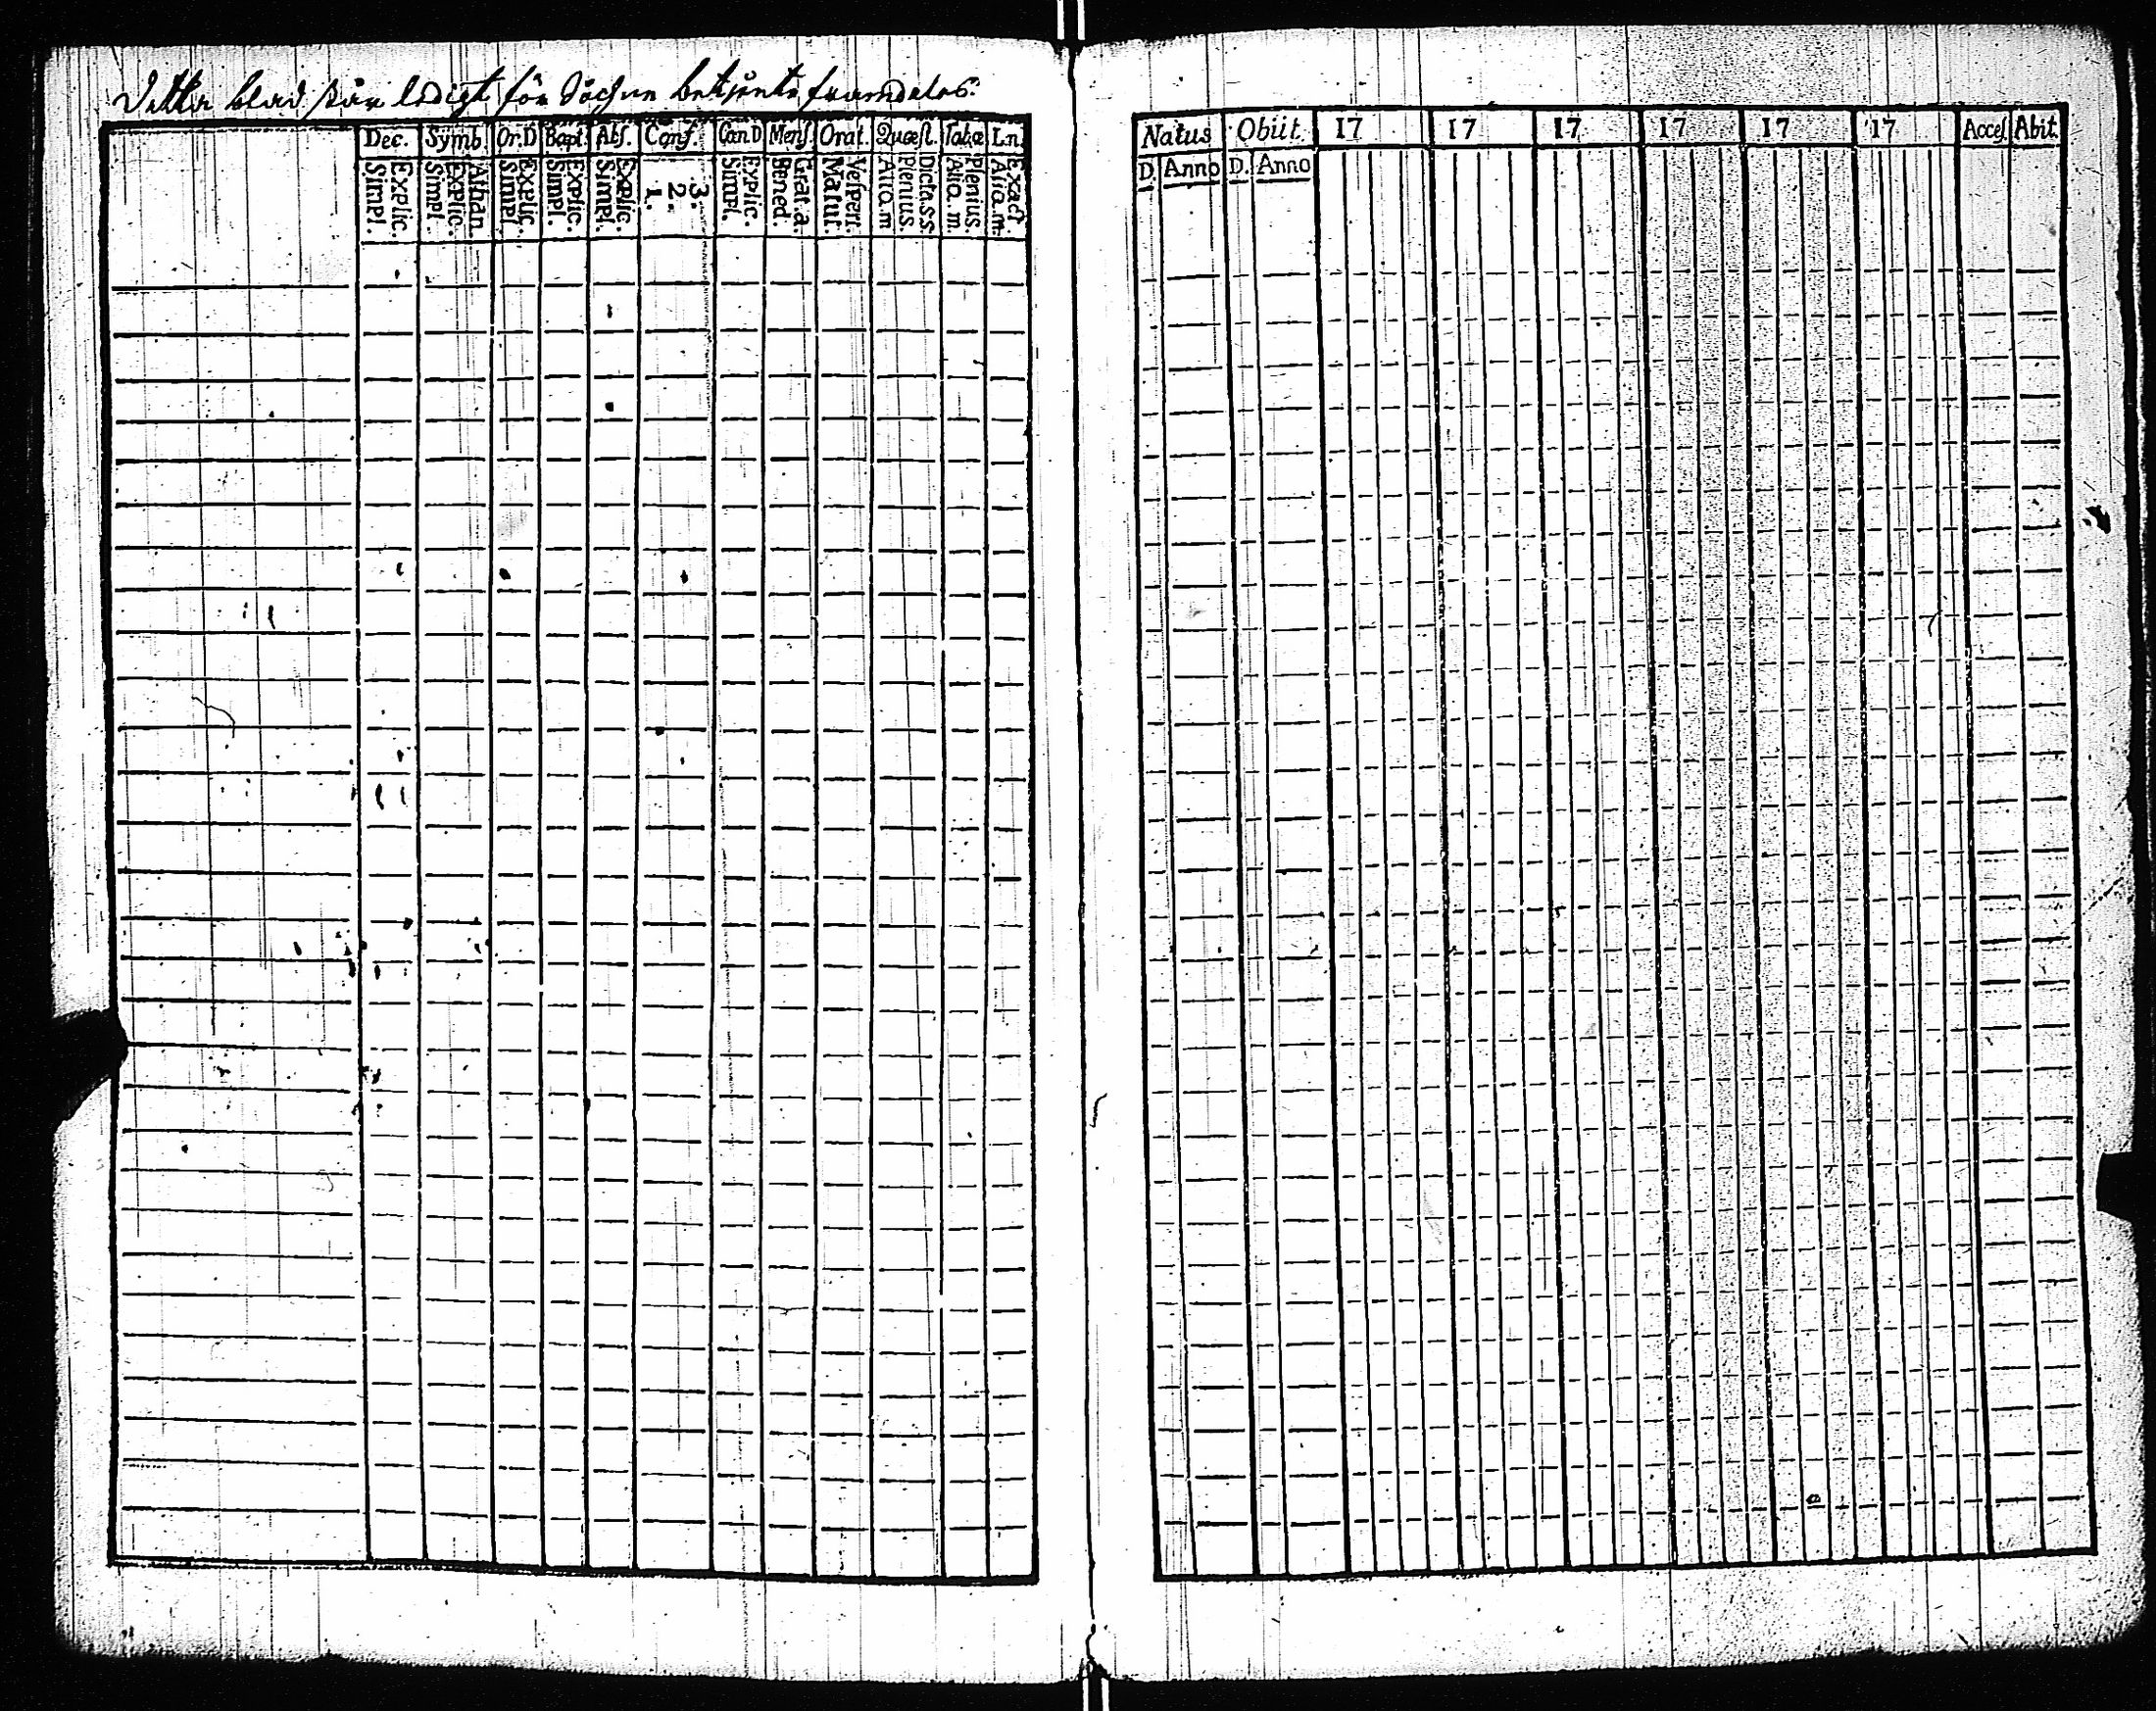 Detta blad står ledigt för Sochne betjente framdeles.
Dec. Symb. Or.D Bapt. Abſ. Conf. Can D Menſ Orat. Quæſt. Tabæ L.n.
Simpl. Explic. Simpl. Explic. Athan. Simpl. Explic. Simpl. Explic. Simpl. Explic. 1. 2. 3. Simpl. Explic. Bened. Grat.a. Matut. Veſperi. Aliq.m Plenius. Dicta.SS Aliq.m. Plenius Aliq.m. Exact.
Natus Obiit. 17 17 17 17 17 17 Acceſ. Abit.
D. Anno D. Anno